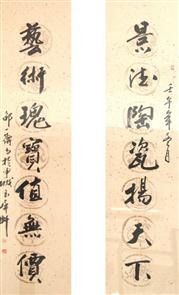 景德陶瓷揚天下
壬午年
藝術瑰寶值無價